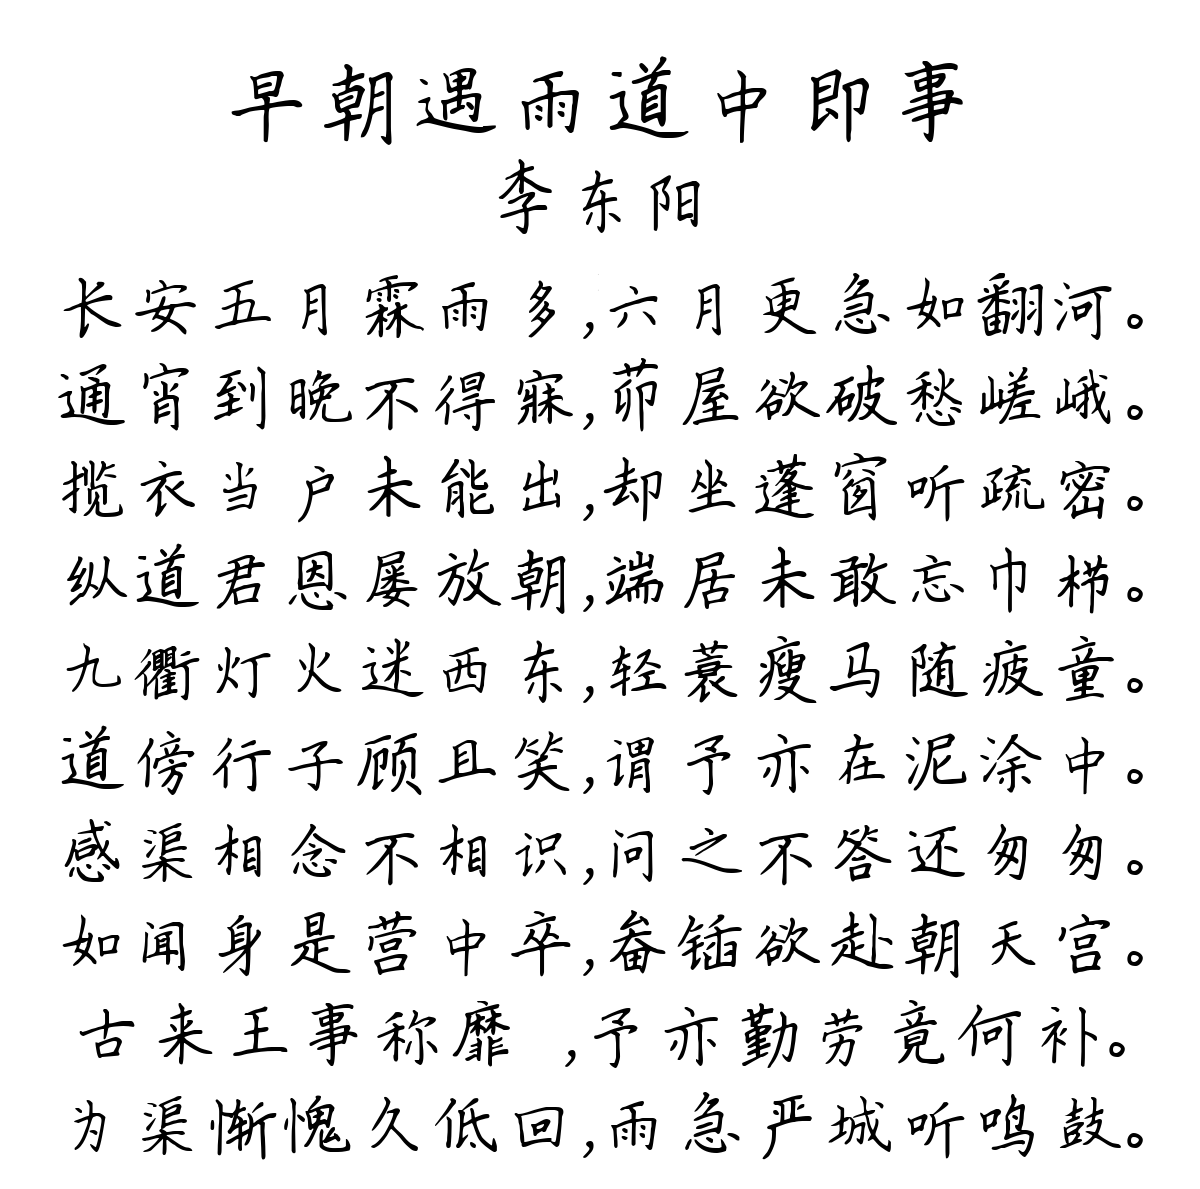 早朝遇雨道中即事
李东阳
长安五月霖雨多,六月更急如翻河。
通宵到晚不得寐,茆屋欲破愁嵯峨。
揽衣当户未能出,却坐蓬窗听疏密。
纵道君恩屡放朝,端居未敢忘巾栉。
九衢灯火迷西东,轻蓑瘦马随疲童。
道傍行子顾且笑,谓予亦在泥涂中。
感渠相念不相识,问之不答还匆匆。
如闻身是营中卒,畚锸欲赴朝天宫。
古来王事称靡 ,予亦勤劳竟何补。
为渠惭愧久低回,雨急严城听鸣鼓。